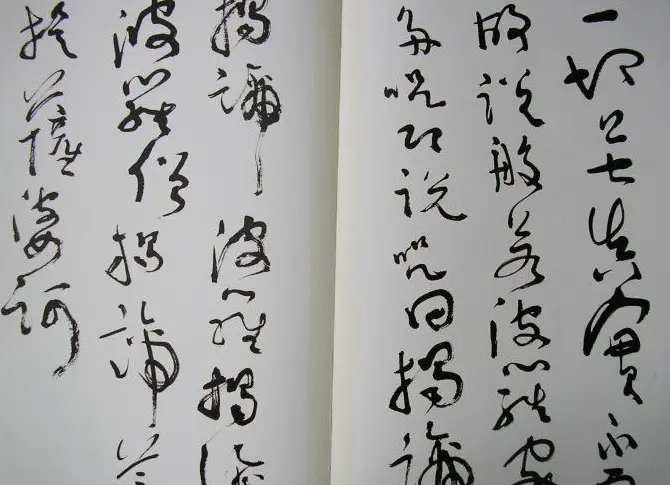 一切苦真實不虛
故說般若波羅蜜
多呪即說呪曰揭諦
揭諦波羅揭諦
波羅僧揭諦菩
提薩婆訶